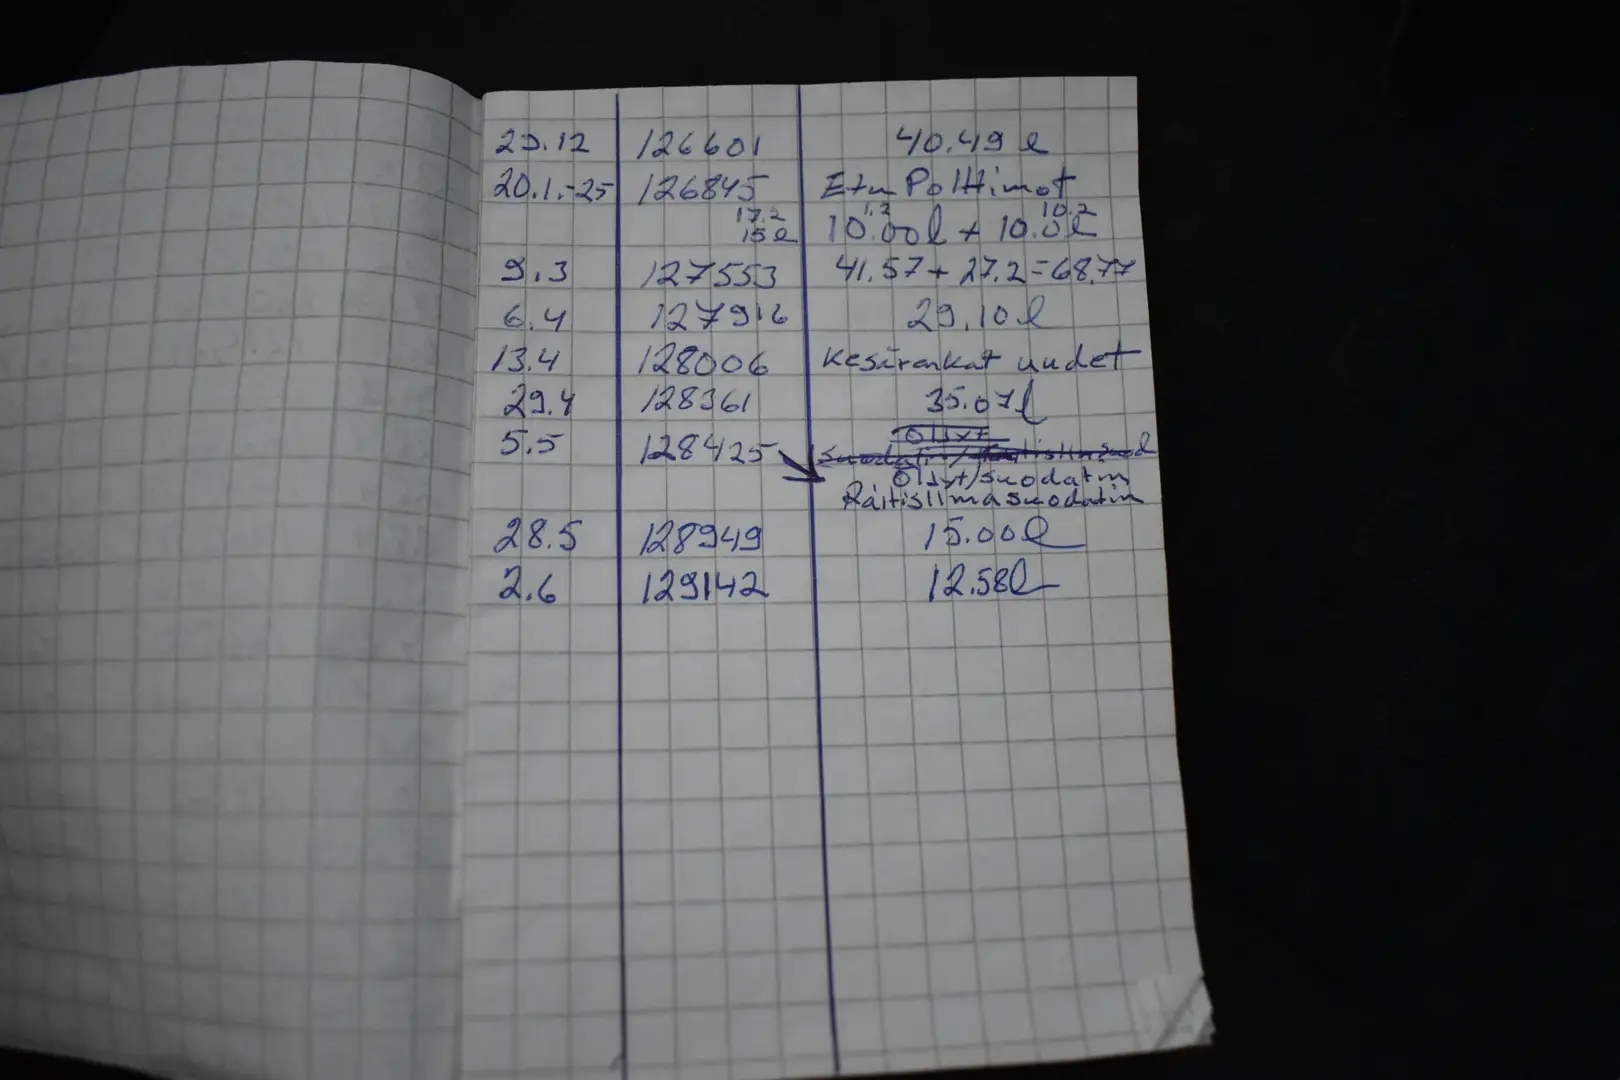 29.12 126601 40.49 l
20.1.-25 126845 Etu Polttimot
17.2 1.2 10.2
15 l 10.00 l + 10.0 l
9.3 127553 41.57 + 27.2 = 68.77
6.4 127916 29.10 l
13.4 128006 Kesärenkat uudet
29.4 128361 35.07 l
Öljyt
5.5 128425
Öljyt/suodatin
Raitisilmasuodatin
28.5 128949 15.00 l
2.6 129142 12.58 l